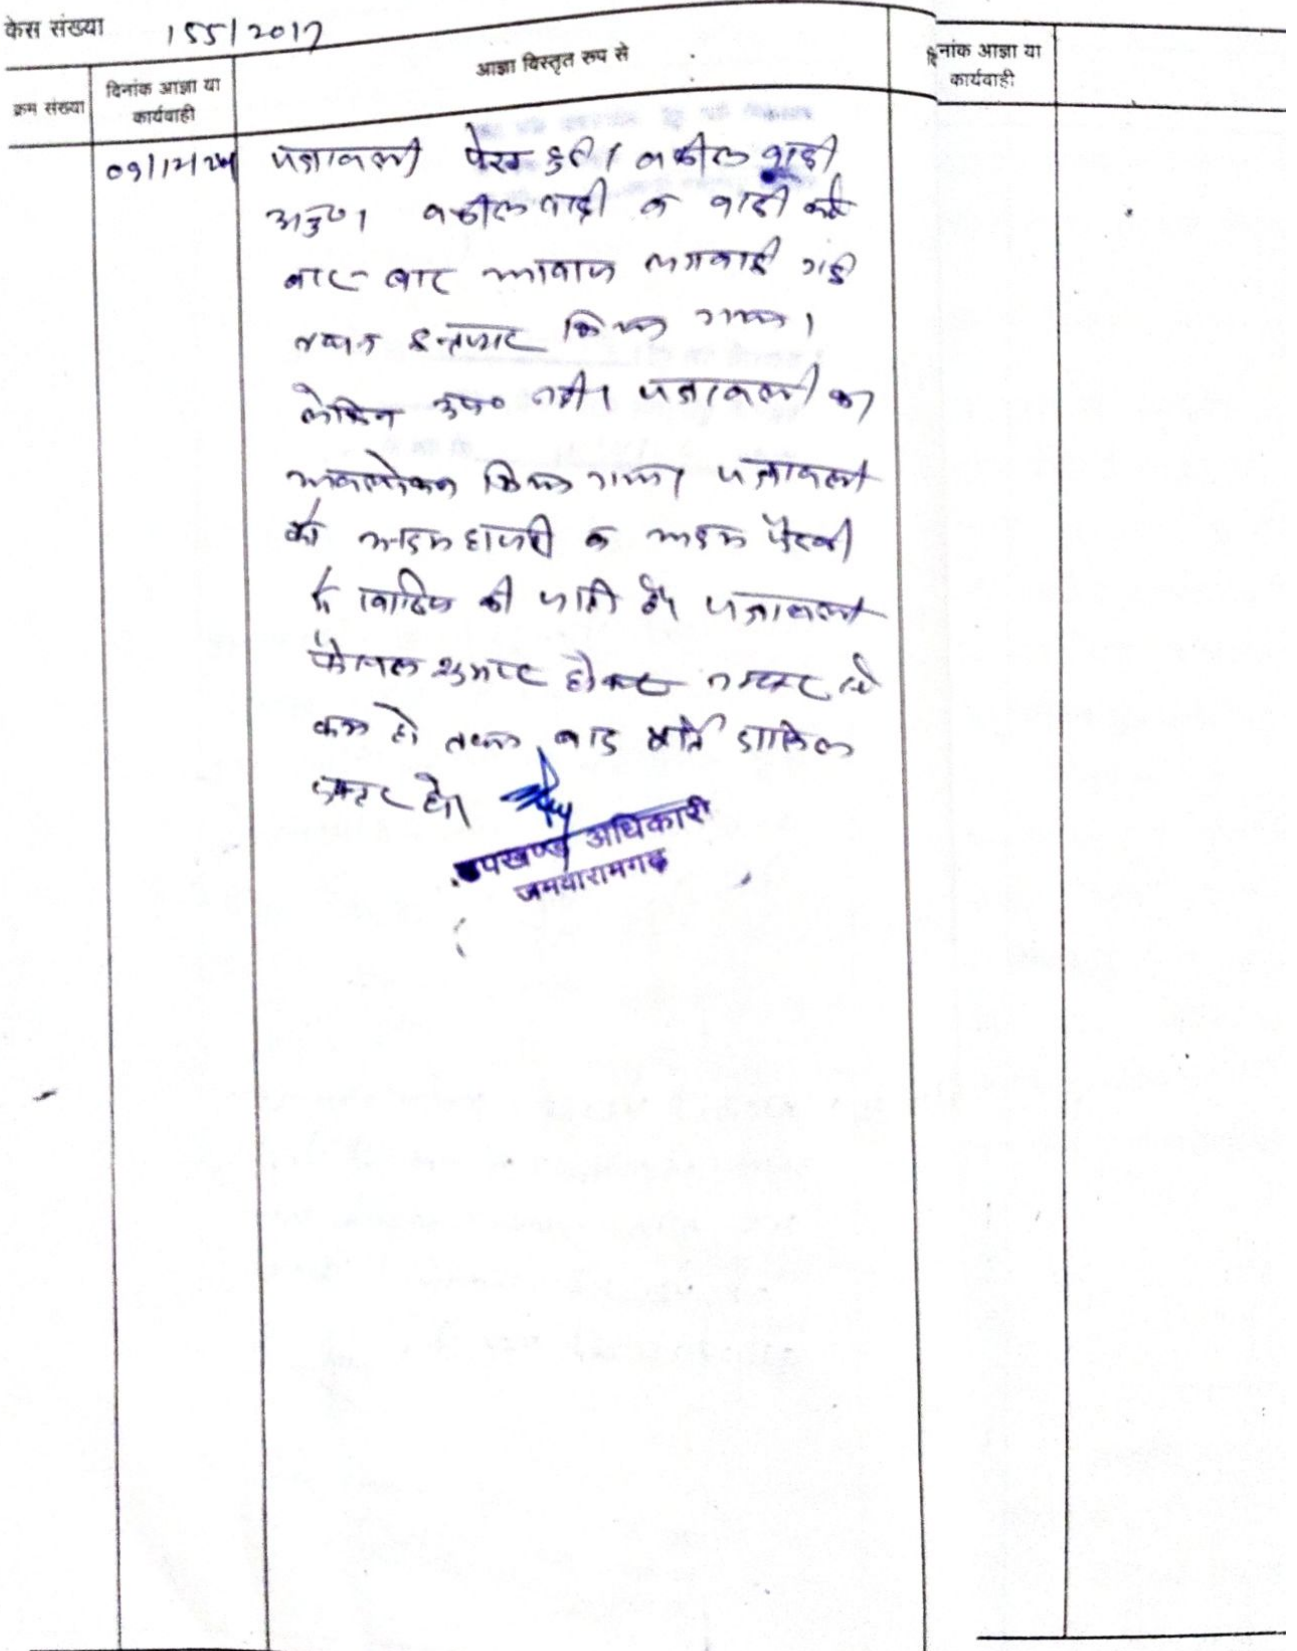 केस संख्या 155/2017
क्रम संख्या
दिनांक आज्ञा या
कार्यवाही
आज्ञा विस्तृत रूप से
दिनांक आज्ञा या
कार्यवाही
पत्रावली पेश हुई। वकील वादी
अनु०। वकील वादी व वादी को
बार-बार आवाज लगवाई गई
तथा इन्तजार किया गया।
लेकिन उप० नहीं। पत्रावली का
अवलोकन किया गया। पत्रावली
को अदम हाजरी व अदम पैरवी
में खारिज की जाती है। पत्रावली
फैसल शुमार होकर नम्बर से
कम हो तथा बाद पूर्ति दाखिल
दफ्तर हो।
उपखण्ड अधिकारी
जमवारामगढ़